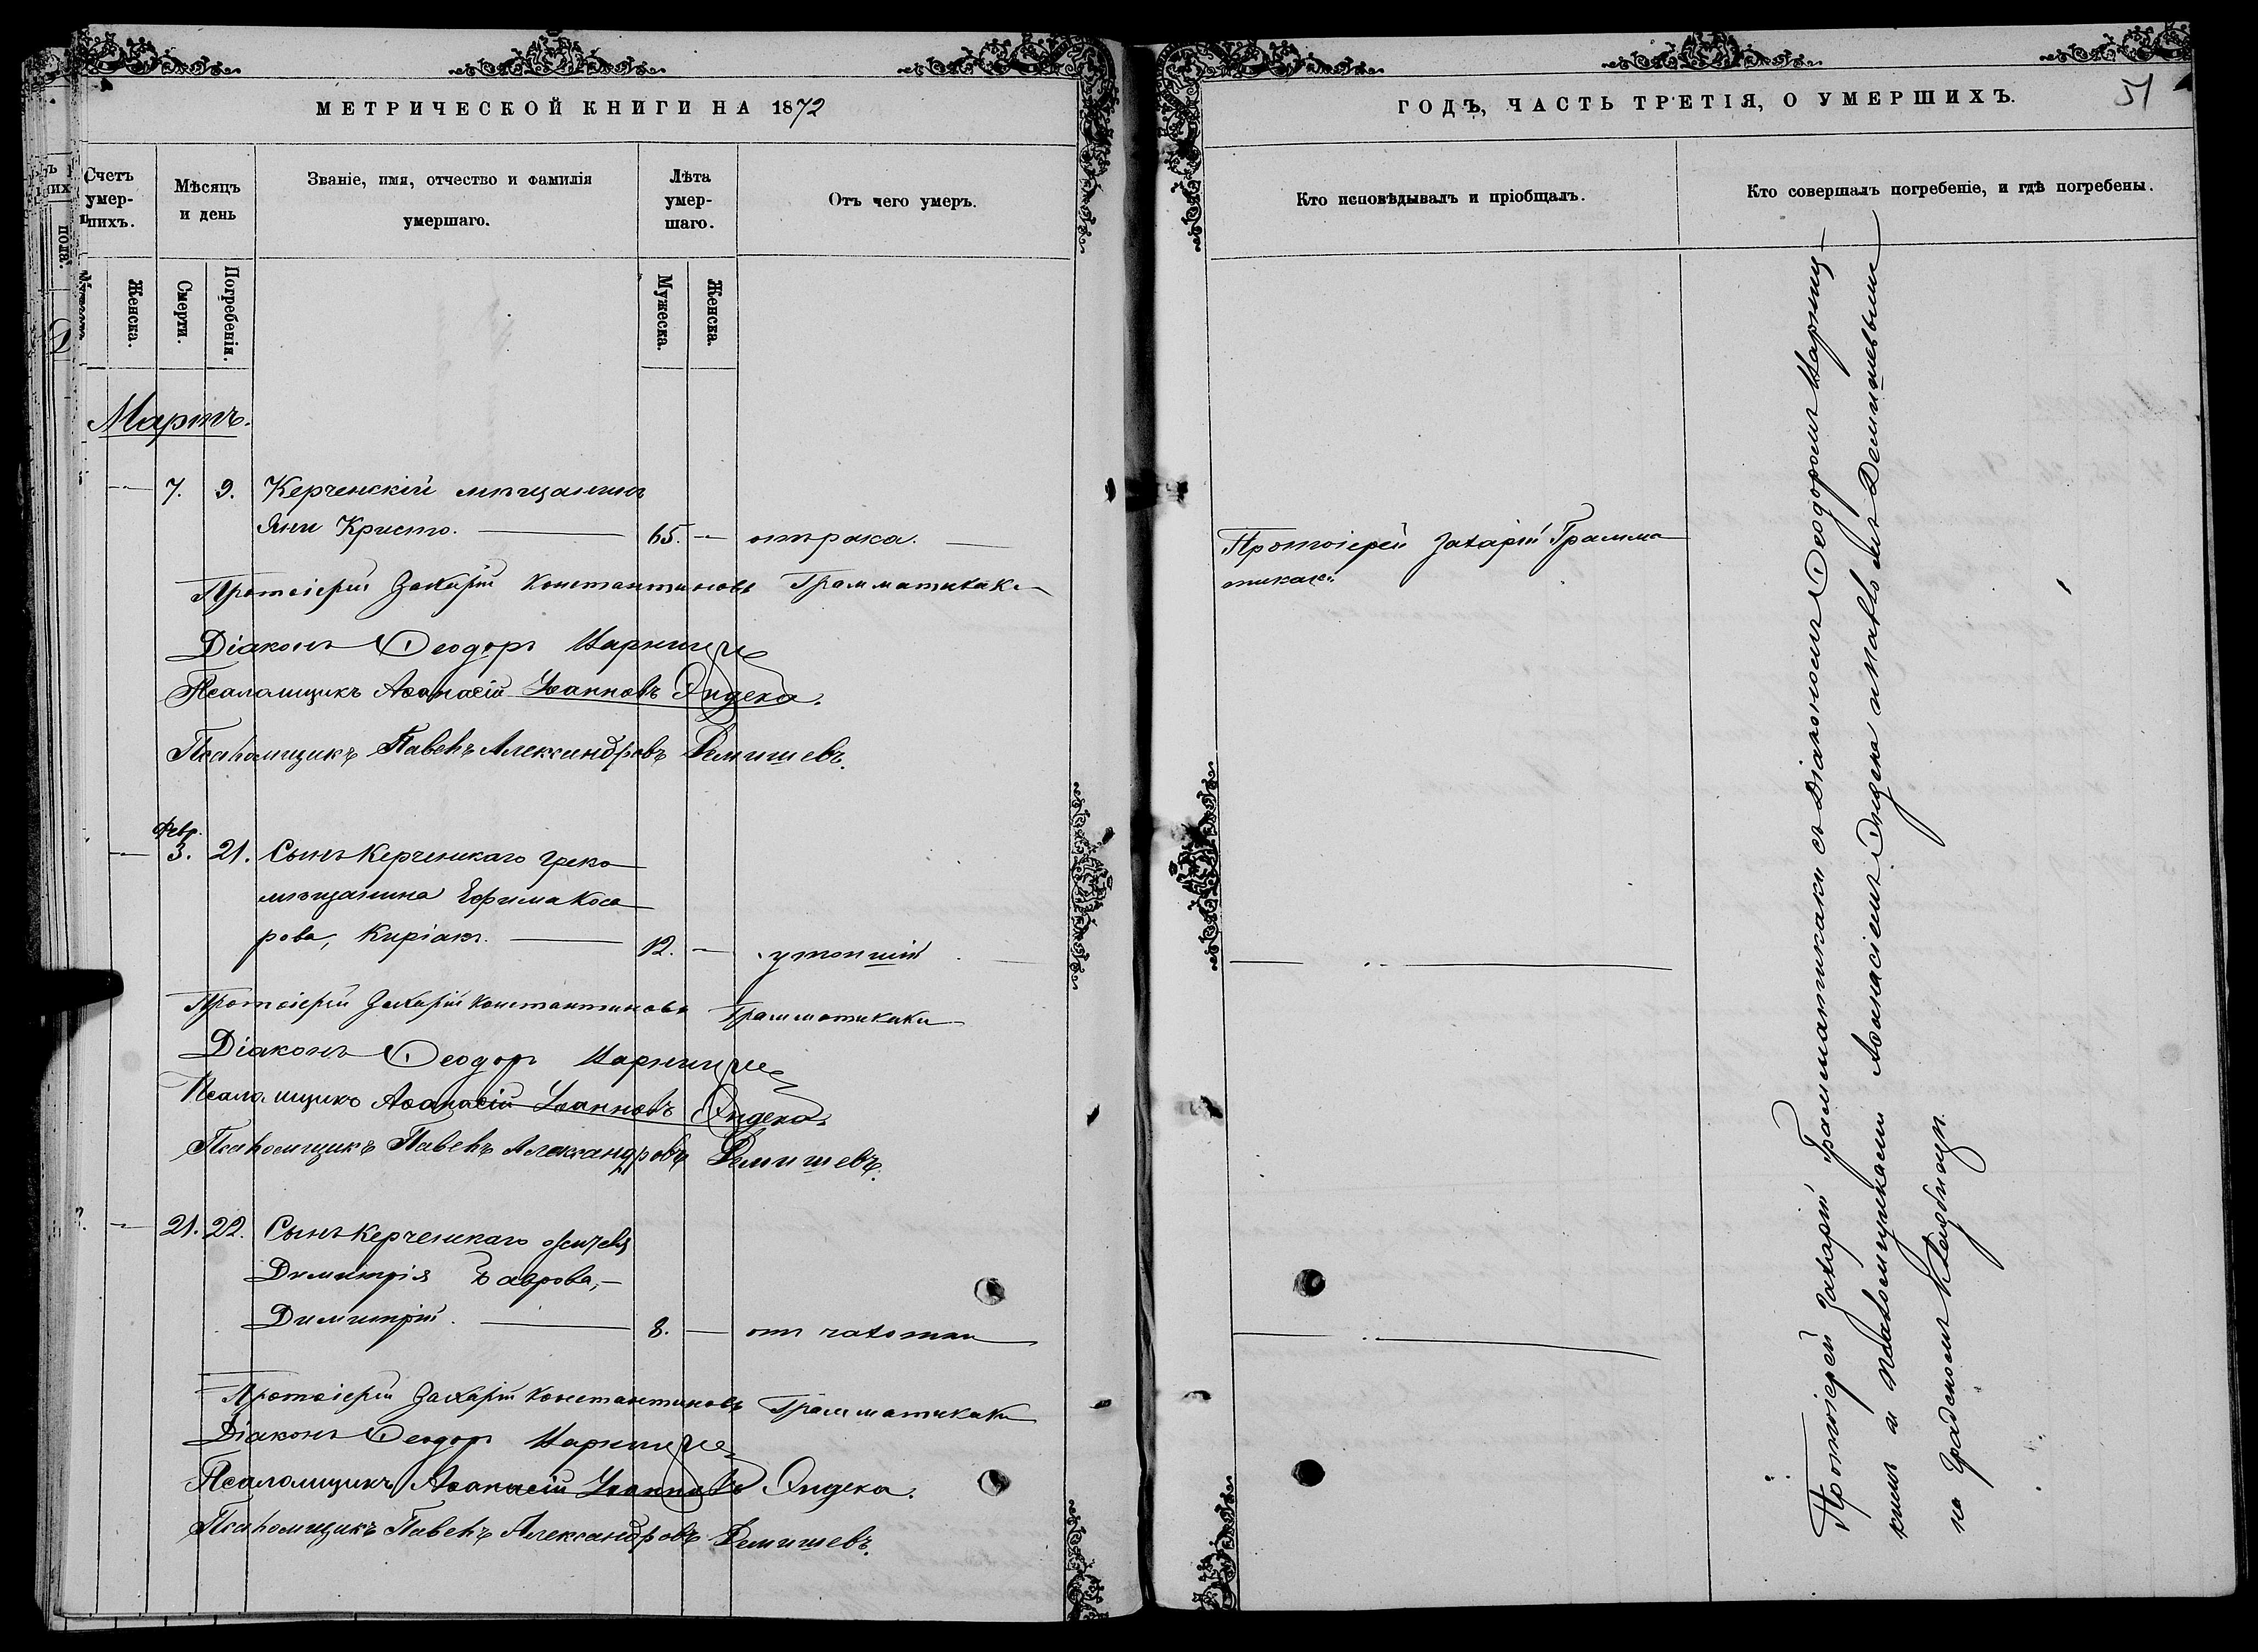 МЕТРИЧЕСКОЙ КНИГИ НА 1872
Счетъ умер-шихъ.
Мѣсяцъ и день
Званіе, имя, отчество и фамилія умершаго.
Лѣта умер-шаго.
Отъ чего умеръ.
Женска.
Смерти.
Погребенія.
Мужеска.
Женска.
Мартъ.
— 7. 9. Керченскій мѣщанинъ
Яни Христо. — 65. — отъ рака. —
Протоіерей Захарій Константиновъ Грамматикаки
Діаконъ Ѳеодоръ
Псаломщикъ Аѳанасій Іоанновъ Индека.
Псаломщикъ Павелъ Александровъ Демишевъ.
Февр.
— 3. 21. Сынъ Керченскаго греко
мѣщанина Ефима Коса
рова, Киріакъ. — 12. — утопшій
Протоіерей Захарій Константиновъ Грамматикаки
Діаконъ Ѳеодоръ
Псаломщикъ Аѳанасій Іоанновъ Индека
Псаломщикъ Павелъ Александровъ Демишевъ.
— 21. 22. Сынъ Керченскаго
Димитрія
Димитрій. — 8. — отъ чахотки
Протоіерей Захарій Константиновъ Грамматикаки
Діаконъ Ѳеодоръ
Псаломщикъ Аѳанасій Іоанновъ Индека.
Псаломщикъ Павелъ Александровъ Демишевъ.
ГОДЪ, ЧАСТЬ ТРЕТІЯ, О УМЕРШИХЪ.
51
Кто исповѣдывалъ и пріобщалъ.
Кто совершалъ погребеніе, и гдѣ погребены.
Протоіерей Захарій Грамма
тикаки
Протоіерей Захарій Грамматикаки съ Діакономъ Ѳеодоромъ
и псаломщиками Аѳанасіемъ Индека и Павломъ Демишевымъ
на градскомъ кладбищѣ.